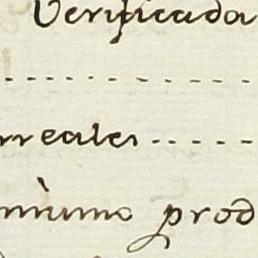 Verificada
rreales
mùmo prod